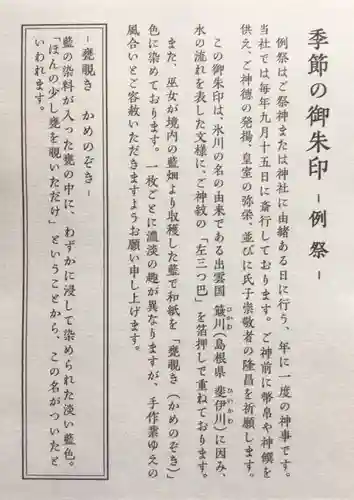 季節の御朱印 - 例祭 -
例祭はご祭神または神社に由緒ある日に行う、年に一度の神事です。
当社では毎年九月十五日に斎行しております。ご神前に幣帛や神饌を
供え、ご神徳の発揚、皇室の弥栄、並びに氏子崇敬者の隆昌を祈願します。
この御朱印は、氷川の名の由来である出雲国 簸川（島根県 斐伊川）に因み、
ひかわ
ひいかわ
水の流れを表した文様に、ご神紋の「左三つ巴」を箔押しで重ねております。
また、巫女が境内の藍畑より収穫した藍で和紙を「甕覗き（かめのぞき）」
色に染めております。一枚ごとに濃淡の趣が異なりますが、手作業ゆえの
風合いとご容赦いただきますようお願い申し上げます。
- 甕覗き　かめのぞき -
藍の染料が入った甕の中に、わずかに浸して染められた淡い藍色。
「ほんの少し甕を覗いただけ」ということから、この名がついたと
いわれます。